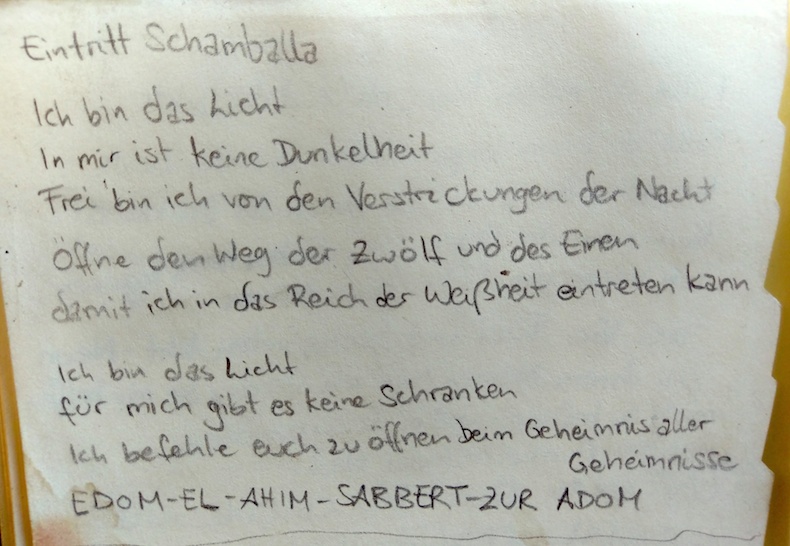 Eintritt Schamballa
Ich bin das Licht
In mir ist keine Dunkelheit
Frei bin ich von den Verstrickungen der Nacht
Öffne den Weg der Zwölf und des Einen
damit ich in das Reich der Weißheit eintreten kann
Ich bin das Licht
für mich gibt es keine Schranken
Ich befehle euch zu öffnen beim Geheimnis aller
Geheimnisse
EDOM-EL-AHIM-SABBERT-ZUR ADOM